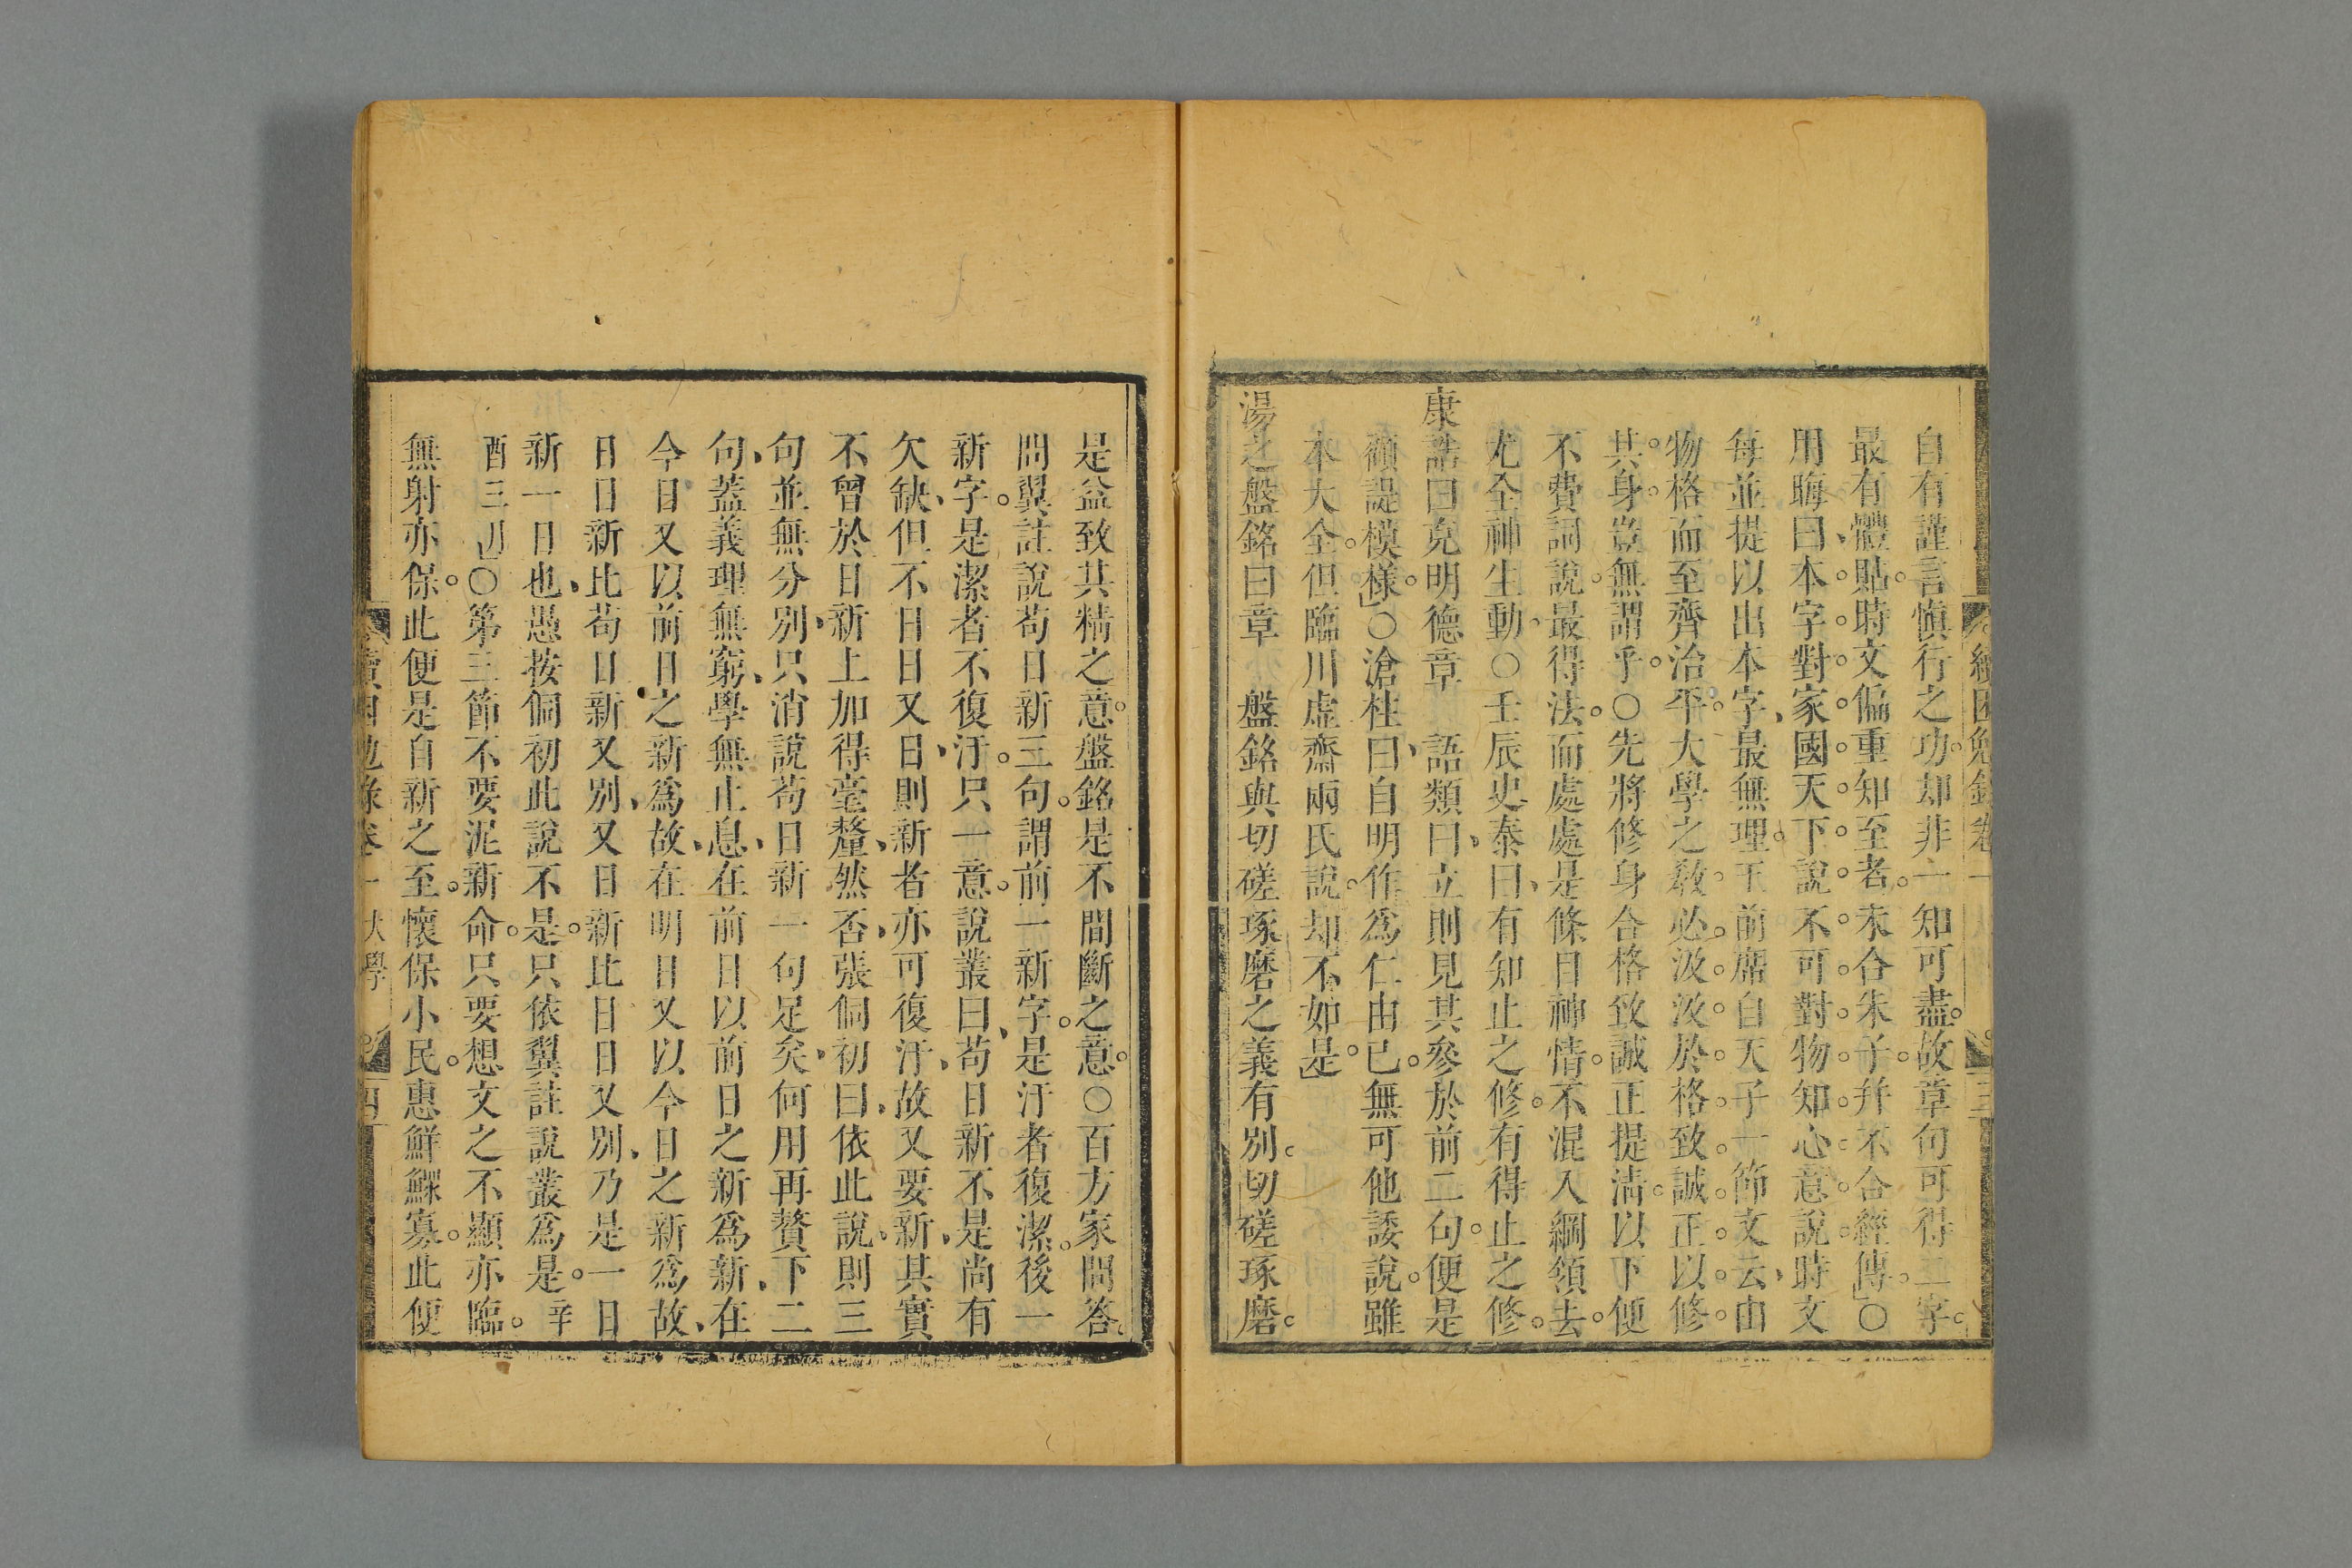 自有謹言慎行之功却非一知可盡故章句可得二字
最有體貼時文偏重知至者未合朱子幷不合經傳○
用晦曰本字對家國天下說不可對物知心意說時文
每並提以出本字最無理王前席自天子一節文云由
物格而至齊治平大學之敎必汲汲於格致誠正以修
其身豈無謂乎○先將修身合格致誠正提清以下便
不費詞說最得法而處處是條目神情不混入綱領去
尤全神生動○壬辰史泰曰有知止之修有得止之修
康誥曰克明德章 語類曰立則見其參於前二句便是
顧諟模樣○滄柱曰自明作爲仁由已無可他諉說雖
本大全但臨川虛齋兩氏說却不如是
湯之盤銘曰章 盤銘與切磋琢磨之義有別切磋琢磨
續困勉錄卷一
三
是益致其精之意盤銘是不間斷之意○百方家問答
問翼註說苟日新三句謂前一新字是汙者復潔後一
新字是潔者不復汙只一意說叢曰苟日新不是尚有
欠缺但不日日又日則新者亦可復汙故又要新其實
不曾於日新上加得毫釐然否張侗初曰依此說則三
句並無分別只消說苟日新一句足矣何用再贅下二
句蓋義理無窮學無止息在前日以前日之新爲新在
今日又以前日之新爲故在明日又以今日之新爲故
日日新比苟日新又別又日新比日日又別乃是一日
新一日也愚按侗初此說不是只依翼註說叢爲是辛
酉三月○第三節不要泥新命只要想文之不顯亦臨
無射亦保此便是自新之至懷保小民惠鮮鰥寡此便
續困勉錄卷一 大學
四